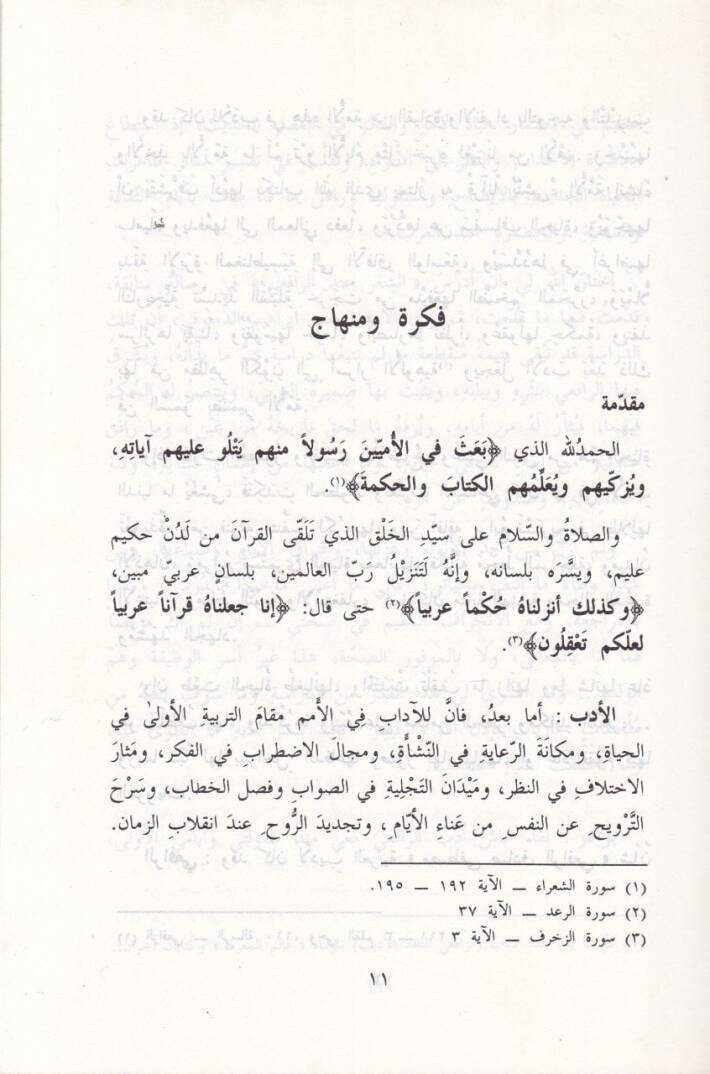 فكرة ومنهاج
مقدّمة
الحمدُلله الذي ﴿بَعَثَ في الأُميّينَ رَسُولاً منهم يَتْلُو عليهم آياتِهِ،
ويُزكّيهم ويُعَلِّمُهم الكتابَ والحكمةَ﴾(١).
والصلاةُ والسّلام على سيّدِ الخَلْق الذي تَلَقّى القرآنَ من لَدُنْ حكيم
عليم، ويسَّرَه بلسانه، وإنَّهُ لَتَنزيْلُ رَبّ العالمين، بلسانٍ عربيّ مبين،
﴿وكذلك أنزلناهُ حُكْماً عربياً﴾(٢) حتى قال: ﴿إنا جعلناهُ قرآناً عربياً
لعلّكم تَعْقِلُون﴾(٣).
الأدب : أما بعدُ، فانَّ للآدابِ في الأُمم مقامَ التربيةِ الأولىٰ في
الحياةِ، ومكانَةَ الرّعايةِ في النّشْأَةِ، ومجالَ الاضطرابِ في الفكر، ومَثارَ
الاختلافِ في النظر، ومَيْدَانَ التَجْليةِ في الصوابِ وفصل الخطاب، وسَرْحَ
التَّرْويحِ عن النفسِ من عَناءِ الأيّامِ، وتجديدَ الرُّوحِ عندَ انقلابِ الزمان.
(١) سورة الشعراء ــ الآية ١٩٢ ــ ١٩٥.
(٢) سورة الرعد ــ الآية ٣٧
(٣) سورة الزخرف ــ الآية ٣
١١